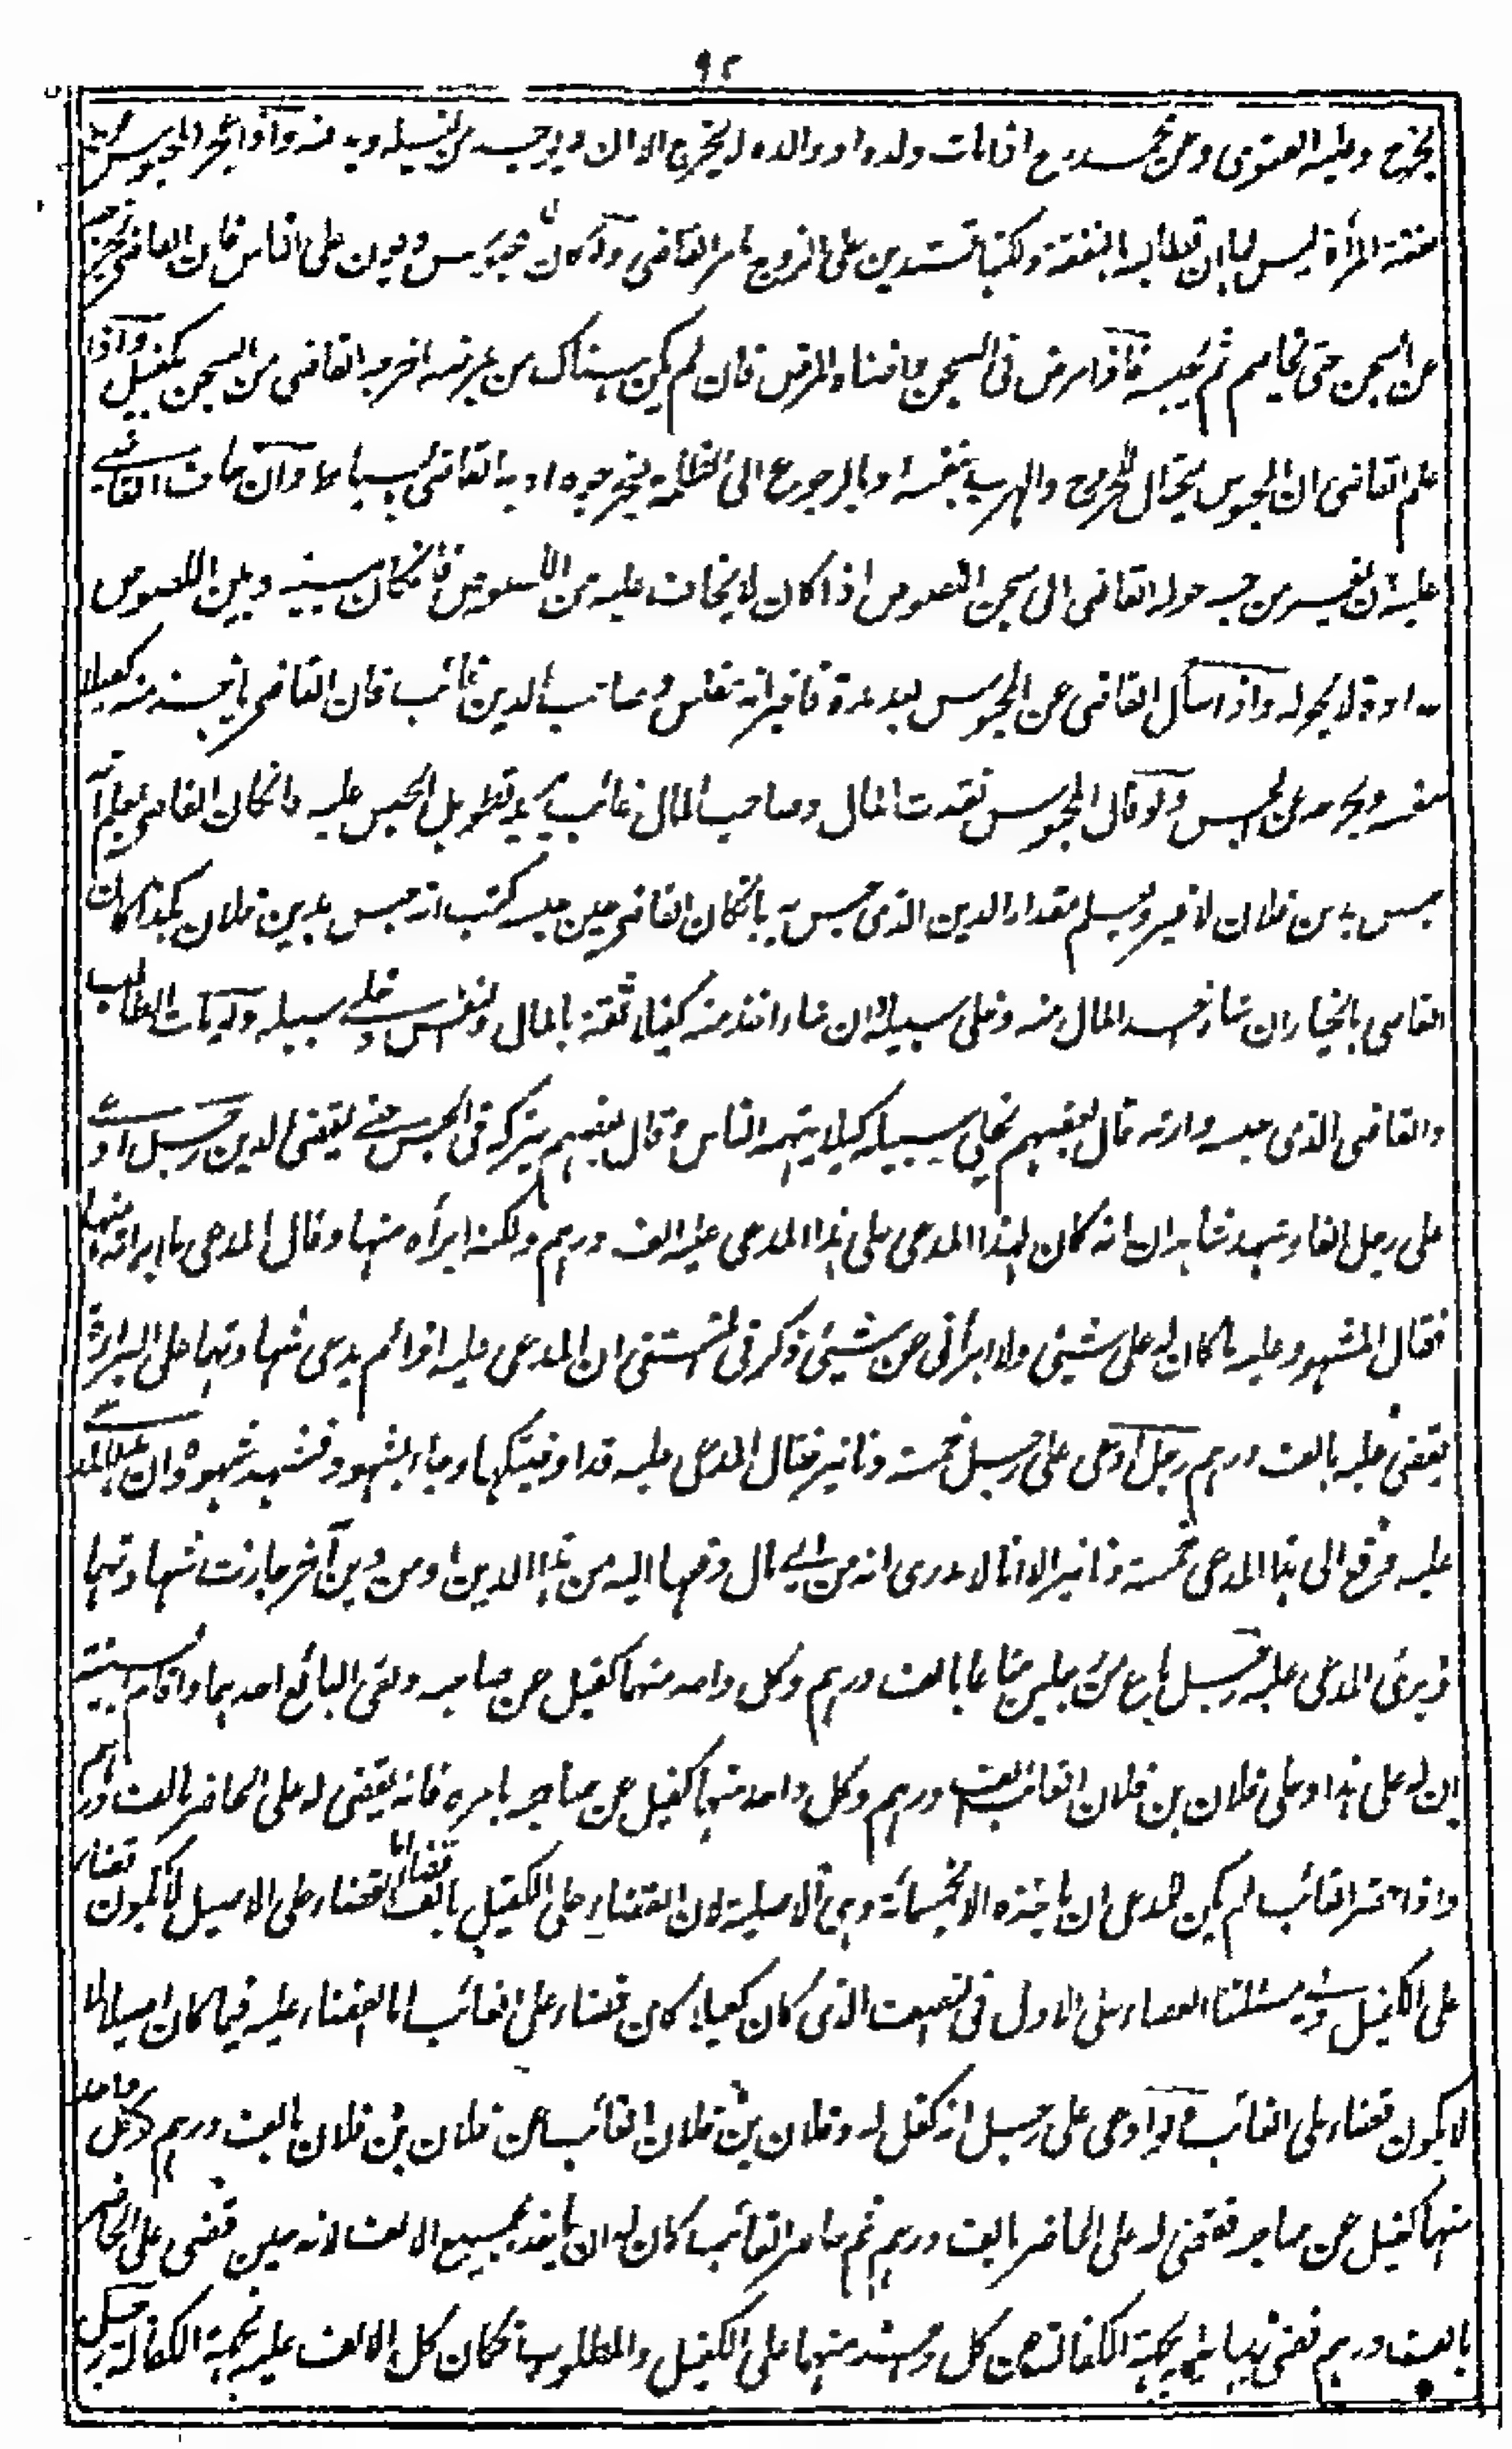 ٩٢
يخرج وعليه الفتوى وعن محمد رح اذا مات ولده او والده لا يخرج الا ان لا يوجد من يغسله وآذا المحبوس
نفقة المرأة ليس لها ان تطالبه بالنفقة ولكنها تستدين على الزوج بامر القاضى ولو كان محبوس ديون على الناس فان القاضى يخرجه
من السجن حتى يخاصم ثم يحبسه فآذا مرض فى السجن واضناه المرض فان لم يكن هناك من يمرضه اخرجه القاضى من السجن بكفيل وآذا
علم القاضى ان المحبوس يحتال للخروج والهرب بنفسه او بالرجوع الى الظلمة ادبه القاضى باسياط وآن خاف القاضى
عليه ان يفر من حبسه حوله القاضى الى سجن اللصوص اذا كان لا يخاف عليه من اللصوص فانكان بينه وبين اللصوص
عداوة لا يحوله وآذا سأل القاضى عن المحبوس بعد مدة فاخبر انه مفلس وصاحب الدين غائب فان القاضى ياخذ منه كفيلا
بنفسه ويخرجه عن الحبس ولو قال المحبوس نقدت المال وصاحب المال غائب يريد تطويل الحبس عليه فانكان القاضى يعلم انه
حبس بدين فلان لا غير ويعلم مقدار الدين الذى حبس به بانكان القاضى حين حبسه كتب انه حبس بدين فلان بكذا كان
القاضى بالخيار ان شاء اخذ المال منه وخلى سبيله وان شاء اخذ منه كفيلا ثقة بالمال والنفس وخلى سبيله ولو مات الطالب
والقاضى الذى حبسه وارثه قال بعضهم يخلى سبيله كيلا يتهمه الناس وقال بعضهم يتركه فى الحبس حتى يقضى الدين رجل ادعى
على رجل الفا وشهد شاهدان انه كان لهذا المدعى على هذا المدعى عليه الف درهم ولكنه ابرأه منها وقال المدعى ما ابرأته منها
فقال المشهود عليه ما كان له على شيئ ولا ابرأنى عن شيئ ذكر فى المنتقى ان المدعى عليه اذا لم يدعى شهادتهما على البراءة
يقضى عليه بالف درهم رجل ادعى على رجل خمسة دنانير فقال المدعى عليه قد اوفيتكها وجاء بشهود فشهد شهوده ان المدعى
عليه دفع الى هذا المدعى خمسة دنانير الا انا لا ندرى انه من اي مال دفعها اليه من هذا الدين او من دين آخر جازت شهادتهما
وبرئ المدعى عليه رجل باع من رجلين متاعا بالف درهم وكل واحد منهما كفيل عن صاحبه ولقى البائع احدهما واقام البينة
ان له على هذا وعلى فلان بن فلان الغائب الف درهم وكل واحد منهما كفيل عن صاحبه بامره فانه يقضى له على الحاضر بالف درهم
واذا حضر الغائب لم يكن للمدعى ان ياخذه الا بخمسمائة وهى الاصلية لان القضاء على الكفيل بالف قضاء القضاء على الاصيل لا يكون قضاء
على الكفيل وفى مسئلتنا القضاء على الاول فى النصف الذى كان كفيلا كان قضاء على الغائب اما القضاء عليه فيما كان اصيلا
لا يكون قضاء على الغائب ولو ادعى على رجل انه كفل له وفلان بن فلان الغائب عن فلان بن فلان بالف درهم وكل واحد
منهما كفيل عن صاحبه فقضى له على الحاضر بالف درهم ثم حضر الغائب كان له ان ياخذ بجميع الالف لانه حين قضى على الحاضر
بالف درهم قضى بجهة الكفالة عن كل واحد منهما على الكفيل والمطلوب فكان كل الالف عليه بجهة الكفالة رجل